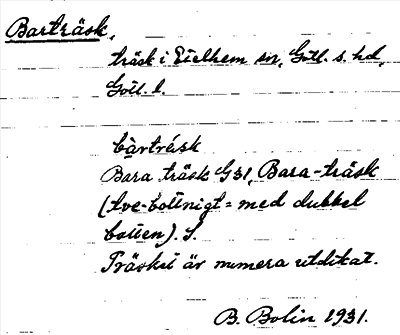 Barträsk,
träsk i Etelhem sn, Gotl. s. hd,
Gotl. l.
ba̤rtrésk
Bara träsk G31, Bara-träsk
(tve-bottnigt = med dubbel
botten). S.
Träsket är numera utdikat.
B. Bolin 1931.